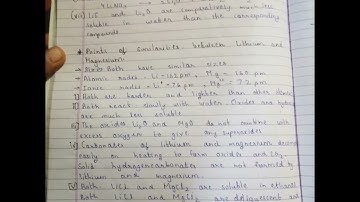 (viii) LiF and Li2O are comparatively much less
soluble in water than the corresponding
compounds
* Points of Similarities between Lithium and
Magnesium:
Both have similar sizes
Atomic radii - Li - 152 pm, Mg = 160 pm
Ionic radii - Li+ - 76 pm, Mg2+ = 72 pm
i) Both are harder and lighter than other
ii) Both react slowly with water. Oxides and
are much less soluble
iii) The oxides Li2O and MgO do not combine with
excess oxygen to give any superoxides
iv) Carbonates of lithium and magnesium
easily on heating to form oxides and CO2
Solid hydrogencarbonates are not formed by
lithium and magnesium.
v) Both LiCl and MgCl2 are soluble in ethanol
Both LiCl and MgCl2 are deliquescent and